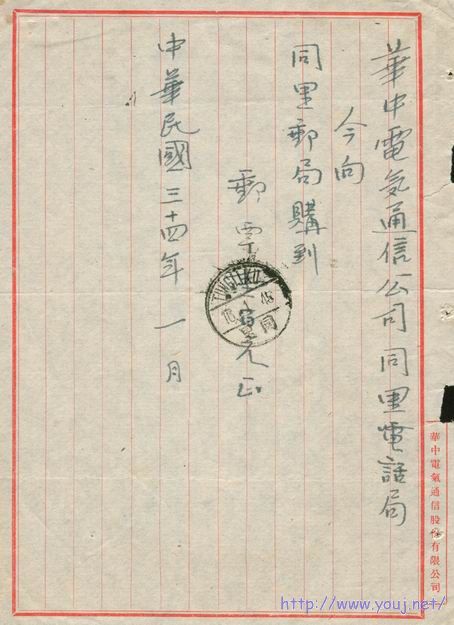 華中電気通信公司同里電話局
今向
同里郵局購到
郵票 元正
中華民國三十四年 一月
華中電氣通信股份有限公司
http://www.youj.net/